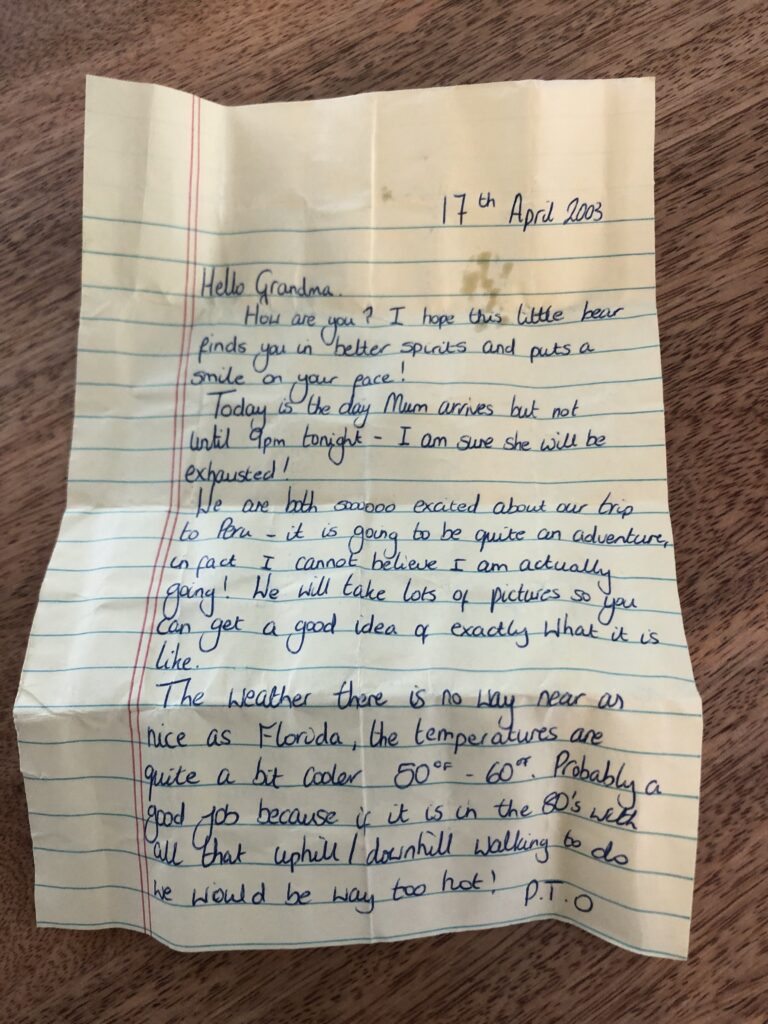 17th April 2003
Hello Grandma.
How are you? I hope this little bear
finds you in better spirits and puts a
smile on your face!
Today is the day Mum arrives but not
until 9pm tonight - I am sure she will be
exhausted!
We are both soooooo excited about our trip
to Peru - it is going to be quite an adventure,
in fact I cannot believe I am actually
going! We will take lots of pictures so you
can get a good idea of exactly what it is
like.
The weather there is no way near as
nice as Florida, the temperatures are
quite a bit cooler 50°F - 60°F. Probably a
good job because if it is in the 80's with
all that uphill/downhill walking to do
we would be way too hot! P.T.O